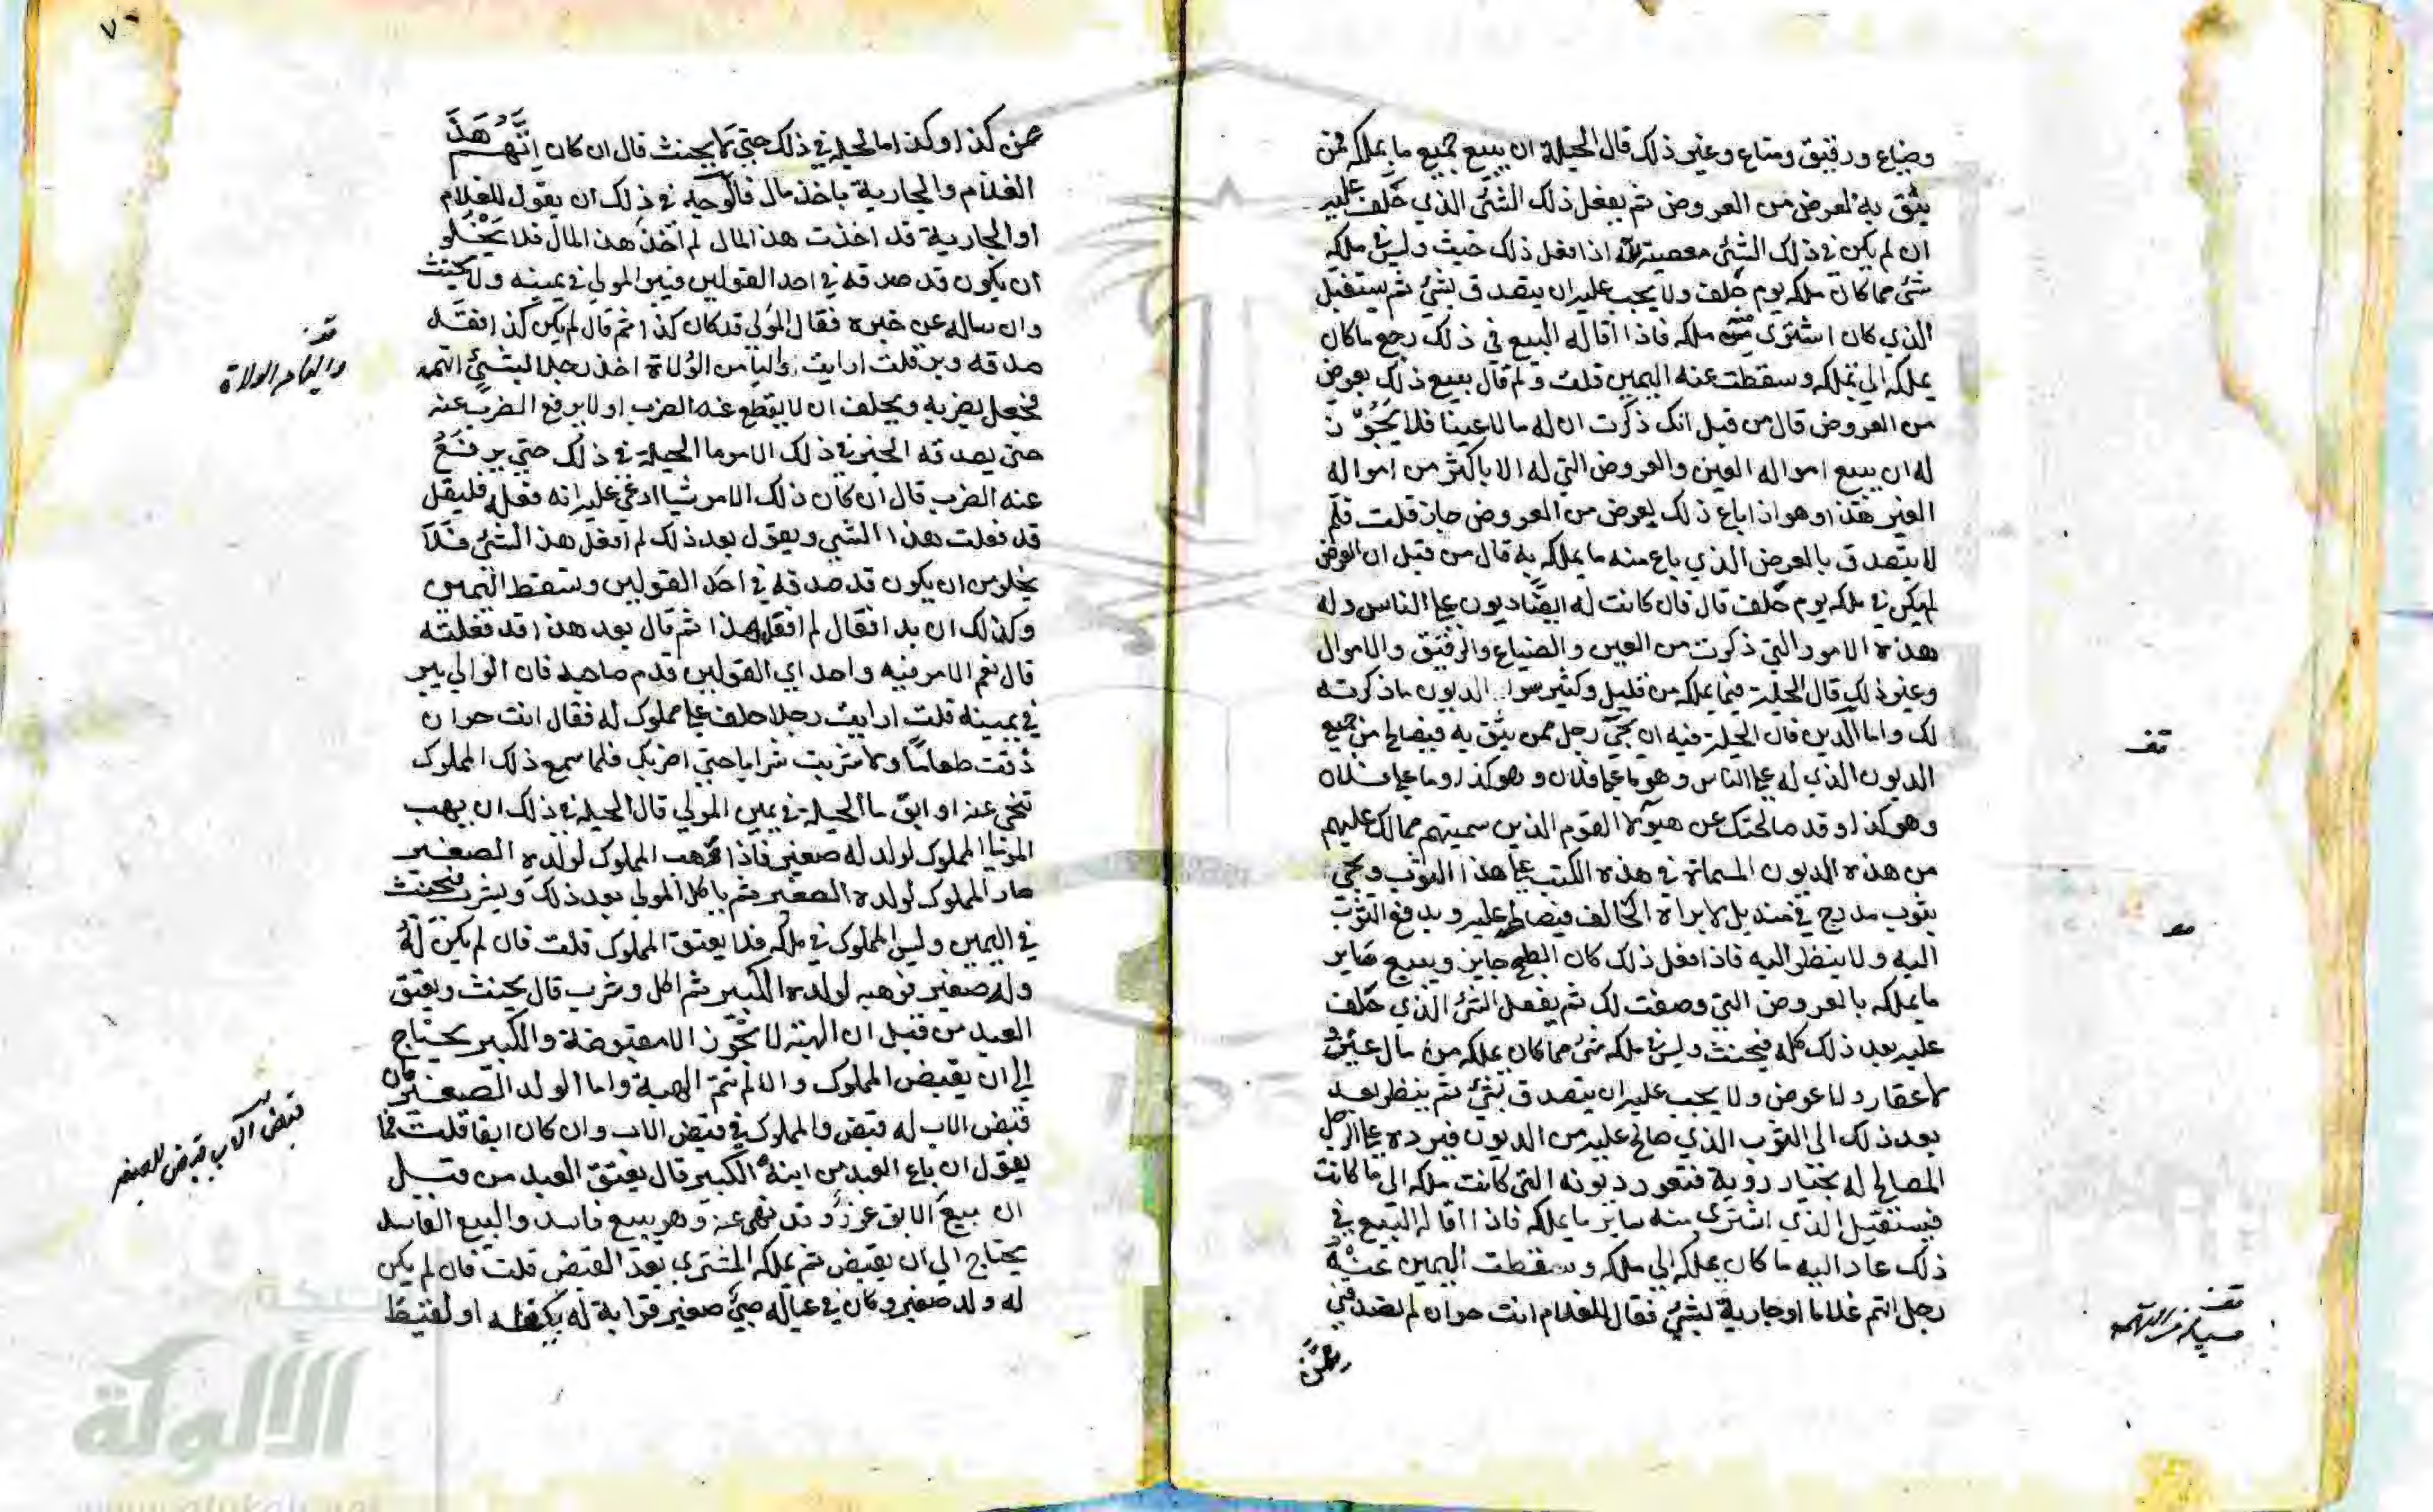 وضياع ورقيق ومتاع وغير ذلك قال الحيلة ان يبيع جميع ما يملكه ممن
يثق به لعرض من العروض ثم يفعل ذلك الشئ الذي حلف عليه
ان لم يكن في ذلك الشئ معصية لله اذا فعل ذلك حنث وليس في ملكه
شئ مما كان ملكه يوم حلف ولا يجب عليه ان يتصدق بشئ ثم يستقيل
الذي كان اشترى منه ملكه فاذا اقاله البيع في ذلك رجع ما كان
يملكه الى ملكه وسقطت عنه اليمين قلت ولم قال يبيع ذلك بعرض
من العروض قال من قبل انك ذكرت ان له مالا عينا فلا يجوز
له ان يبيع امواله العين والعروض التي له الا باكثر من امواله
العين هذا وهو اذا باع ذلك بعرض من العروض جاز قلت فلم
لا يتصدق بالعرض الذي باع منه ما يملكه به قال من قبل ان العرض
لم يكن في ملكه يوم حلف قال فان كانت له ايضا ديون على الناس وله
هذه الامور التي ذكرت من العين والضياع والرقيق والاموال
وغير ذلك قال الحيلة فيما يملكه من قليل وكثير سوا الديون ما ذكرته
لك واما الدين فان الحيلة فيه ان يجئ رجل ممن يثق به فيصالح من جميع
الديون الذي له على الناس وهو ما على فلان وهو كذا وما على فلان
وهو كذا وقد صالحتك عن هؤلاء القوم الذين سميتهم مما لك عليهم
من هذه الديون المسماة في هذه الكتب على هذا الثوب ويجئ
بثوب مدرج في منديل لا يراه الحالف فيصالح عليه ويدفع الثوب
اليه ولا ينظر اليه فاذا فعل ذلك كان الصلح جايز ويبيع ساير
ما يملكه بالعروض التي وصفت لك ثم يفعل الشئ الذي حلف
عليه بعد ذلك كله فيحنث وليس في ملكه شئ مما كان يملكه من مال عين
لا عقار ولا عرض ولا يجب عليه ان يتصدق بشئ ثم ينظر بعد
بعد ذلك الى الثوب الذي صالح عليه من الديون فيرده على الرجل
المصالح له بخيار روية فتعود ديونه التي كانت ملكه الى ما كانت
فيستقيل الذي اشترى منه ساير ما يملكه فاذا اقاله البيع في
ذلك عاد اليه ما كان يملكه الى ملكه وسقطت اليمين عنه
رجل اتهم غلاما او جارية بشئ فقال للغلام انت حر ان لم تصدقني
عن
قف
قف
عن كذا وكذا ما الحيلة في ذلك حتى لا يحنث قال ان كان اتهم هذا
الغلام والجارية باخذ مال فالوجه في ذلك ان يقول للغلام
او الجارية قد اخذت هذا المال لم اخذ هذا المال فلا يخلو
ان يكون قد صدقه في احد القولين فيبر المولى في يمينه ولا يحنث
وان ساله عن خبره فقال المولى قد كان كذا ثم قال لم يكن كذا فقد
صدقه وبر قلت ارايت واليا من الولاة اخذ رجلا لشئ اتهمه
فجعل يضربه ويحلف ان لا يقطع عنه الضرب او لا يرفع الضرب عنه
حتى يصدقه الخبر في ذلك الامر ما الحيلة في ذلك حتى يرفع
عنه الضرب قال ان كان ذلك الامر شيا ادعى عليه انه فعله فليقل
قد فعلت هذا الشي ويقول بعد ذلك لم افعل هذا الشئ فلا
يخلو من ان يكون قد صدقه في احد القولين وتسقط اليمين
وكذلك ان بدا فقال لم افعل هذا ثم قال بعد هذا قد فعلته
قال نعم الامر فيه واحد اي القولين قدم صاحبه فان الوالي يبر
في يمينه قلت ارايت رجلا حلف على مملوك له فقال انت حر ان
ذقت طعاما ولا شربت شرابا حتى اضربك فلما سمع ذلك المملوك
تنحى عنه او ابق ما الحيلة في يمين المولي قال الحيلة في ذلك ان يهب
المولى المملوك لولد له صغير فاذا وهب المملوك لولده الصغير
صار المملوك لولده الصغير ثم ياكل المولى بعد ذلك ويشرب فيحنث
في اليمين وليس المملوك في ملكه فلا يعتق المملوك قلت فان لم يكن له
ولد صغير فوهبه لولده الكبير ثم اكل وشرب قال يحنث ويعتق
العبد من قبل ان الهبة لا تجوز الا مقبوضة والكبير يحتاج
الى ان يقبض المملوك والا لم تتم الهبة واما الولد الصغير فان
قبض الاب له قبض والمملوك في قبض الاب وان كان ابقا قلت فما
يقول ان باع العبد من ابنه الكبير قال يعتق العبد من قبل
ان بيع الابق غرر وقد نهى عنه وهو بيع فاسد والبيع الفاسد
يحتاج الى ان يقبض ثم يملكه المشتري بعد القبض قلت فان لم يكن
له ولد صغير وكان في عياله صبي صغير قرابة له يكفله او لقيط
قف
قبض الاب قبض للصغير
الألوكة